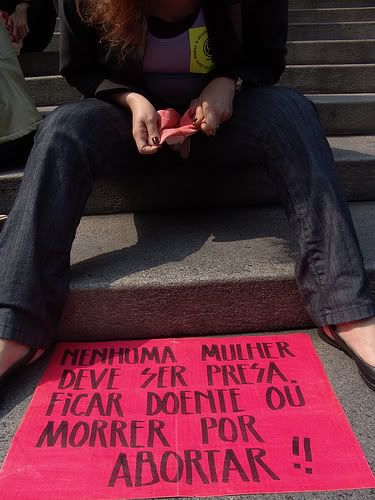 NENHUMA MULHER
DEVE SER PRESA.
FICAR DOENTE OU
MORRER POR
ABORTAR !!